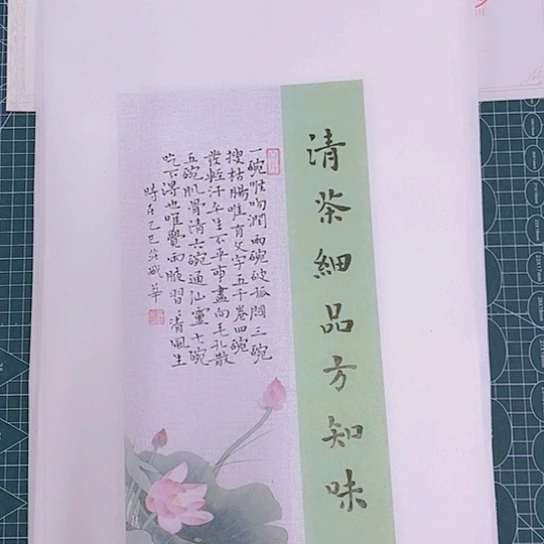 清茶細品方知味
一碗喉吻潤兩碗破孤悶三碗
搜枯腸唯有文字五千卷四碗
發輕汗平生不平事盡向毛孔散
五碗肌骨清六碗通仙靈七碗
吃不得也唯覺兩腋習〻清風生
時在乙巳 華